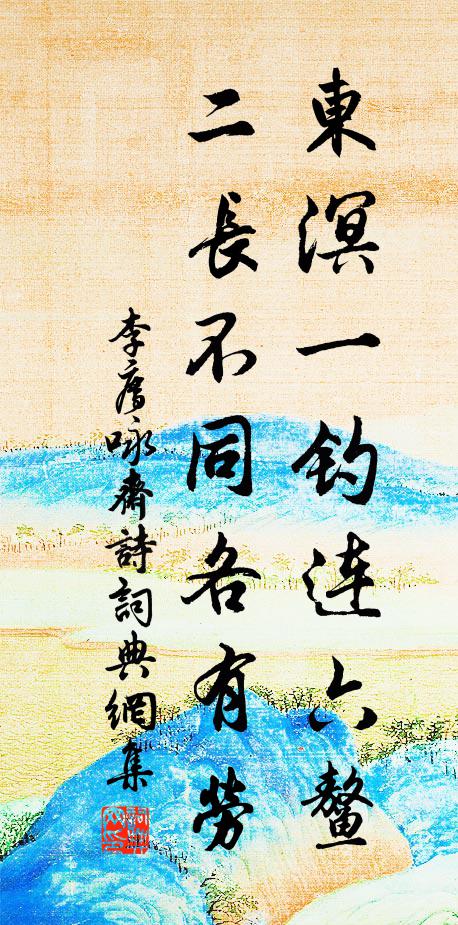 東溟一钓連六鰲
二長不同各有勞
李廌咏齋詩詞典網集